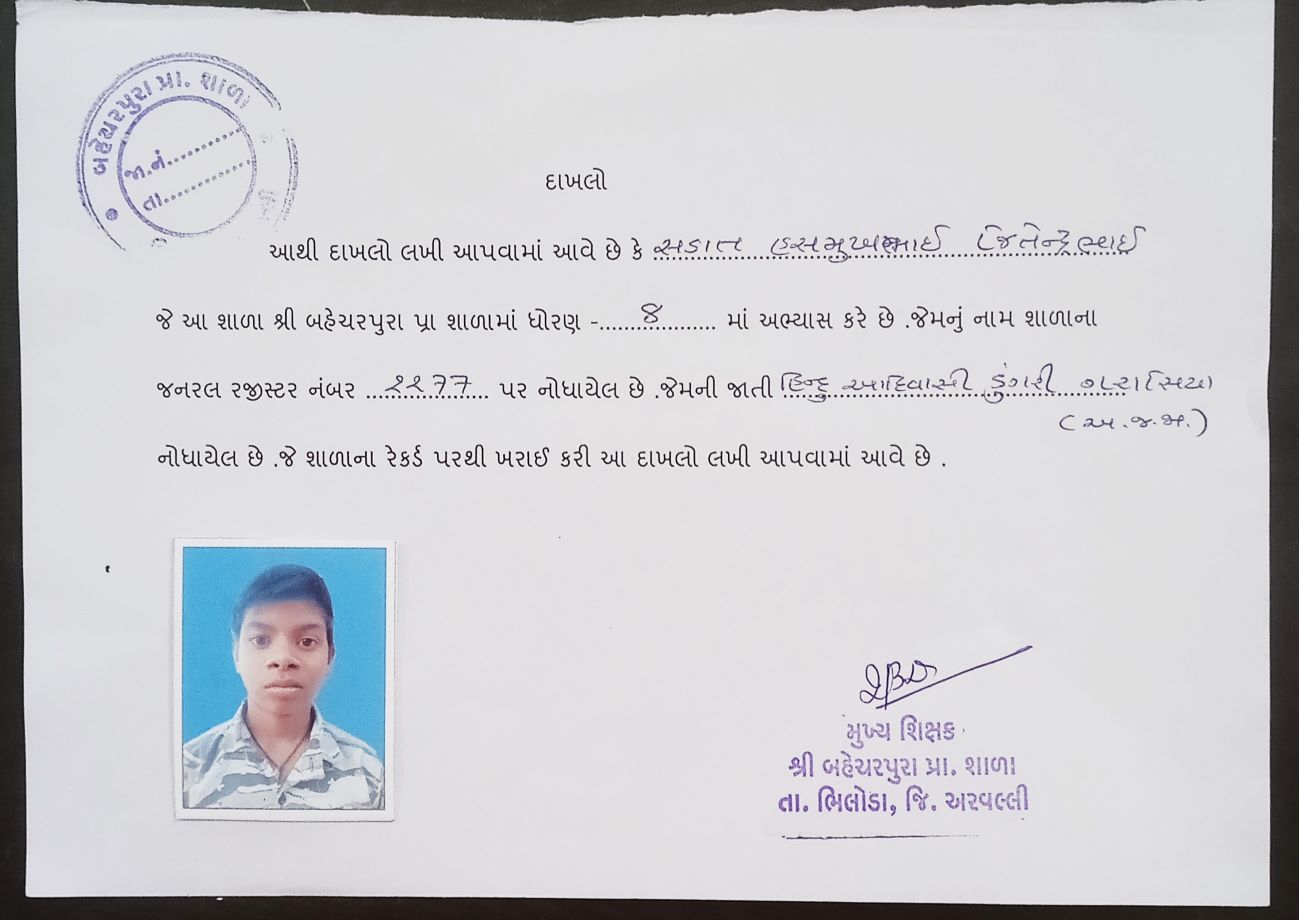 બહેચરપુરા પ્રા. શાળા
જા.નં............
તા...............
દાખલો
આથી દાખલો લખી આપવામાં આવે છે કે સડાત હસમુખભાઈ જિતેન્દ્રભાઈ
જે આ શાળા શ્રી બહેચરપુરા પ્રા શાળામાં ધોરણ -.......૪.......... માં અભ્યાસ કરે છે .જેમનું નામ શાળાના
જનરલ રજીસ્ટર નંબર ..૨૨૭૭.. પર નોધાયેલ છે .જેમની જાતી હિન્દુ આદિવાસી ડુંગરી ગરાસિયા
(અ.જ.જા.)
નોધાયેલ છે .જે શાળાના રેકર્ડ પરથી ખરાઈ કરી આ દાખલો લખી આપવામાં આવે છે .
મુખ્ય શિક્ષક
શ્રી બહેચરપુરા પ્રા. શાળા
તા. ભિલોડા, જિ. અરવલ્લી